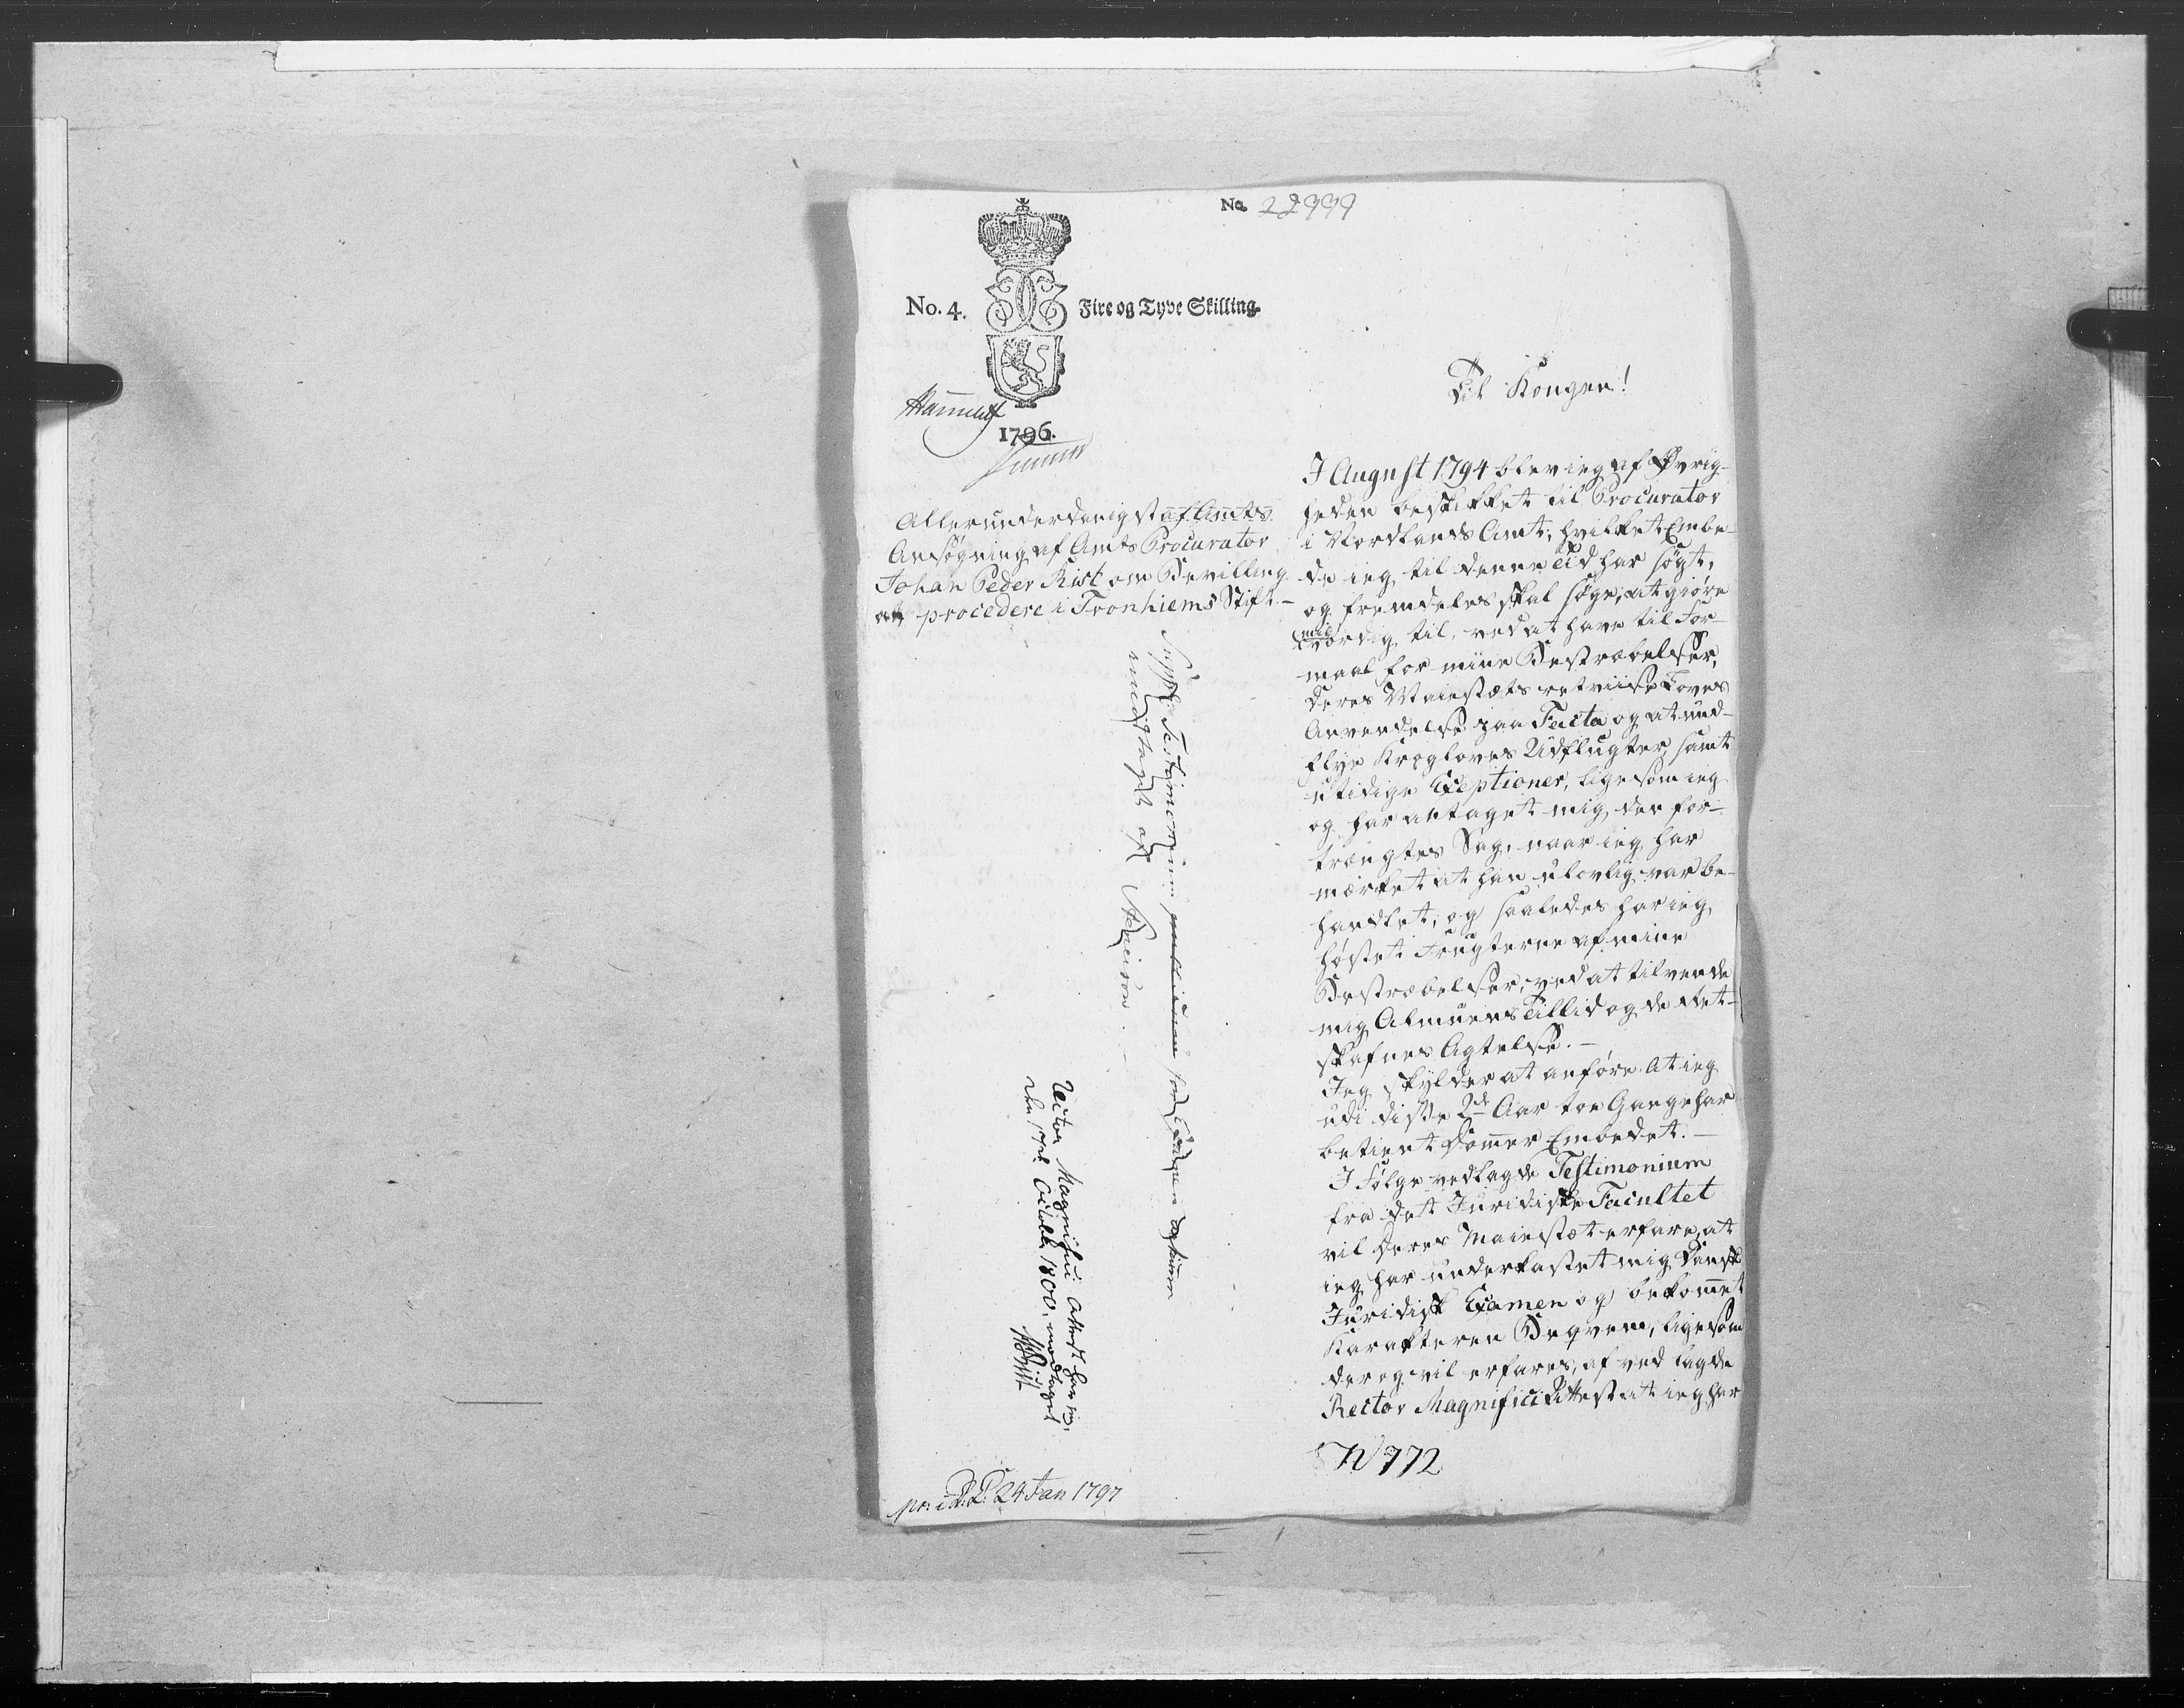 No. 22999
No. 4. Fire og Tyve Skilling.
1796.
Til Kongen!
Allerunderdanigst af Amts
Ansøgning af Amts Procurator
Johan Peder Rist om Bevilling
att procedere i Tronhiems Stift.
I August 1794 blev ieg af Øvrig-
heden beskikket til Procurator
i Nordlands Amt; hvilket Embe-
de ieg til denne Tid har søgt,
og fremdeles skal søge, at giøre
mig værdig til, ved at have til For-
maal for mine Bestræbelser,
Deres Maiestæts retviise Loves
Anvendelse paa Facta og at und-
flye Krogloves Udflugter, samt
utidige Exeptioner, ligesom ieg
og har antaget mig den for-
trængtes Sag, naar ieg har
mærket at han ulovlig var be-
handlet; og saaledes har ieg,
høstet Frugterne af mine
Bestræbelser, ved at tilvende
mig Almuens Tillid og de Ret-
skafnes Agtelse. -
Jeg skylder at anføre at ieg
udi disse 2de Aar toe Gange har
betient Dommer Embedet. -
I Følge vedlagde Testimonium
fra det Juridiske Facultet
vil Deres Maiestæt erfare, at
ieg har underkastet mig Dansk
Juridisk Examen og bekommet
Karakteren Beqvem, ligesom
der og vil erfares, af ved lagde
Rector Magnifici Attest at ieg har
N 772
Testimonium
modtaget af
Rector Magnifici Attest har ieg,
den 17de Octobr 1800 modtaget
Rist
pr: i D: C: 24 Jan 1797